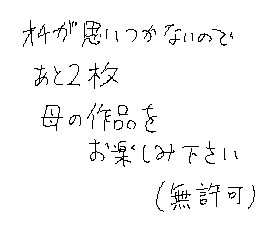 オチが思いつかないので
あと2枚
母の作品を
お楽しみ下さい
(無許可)